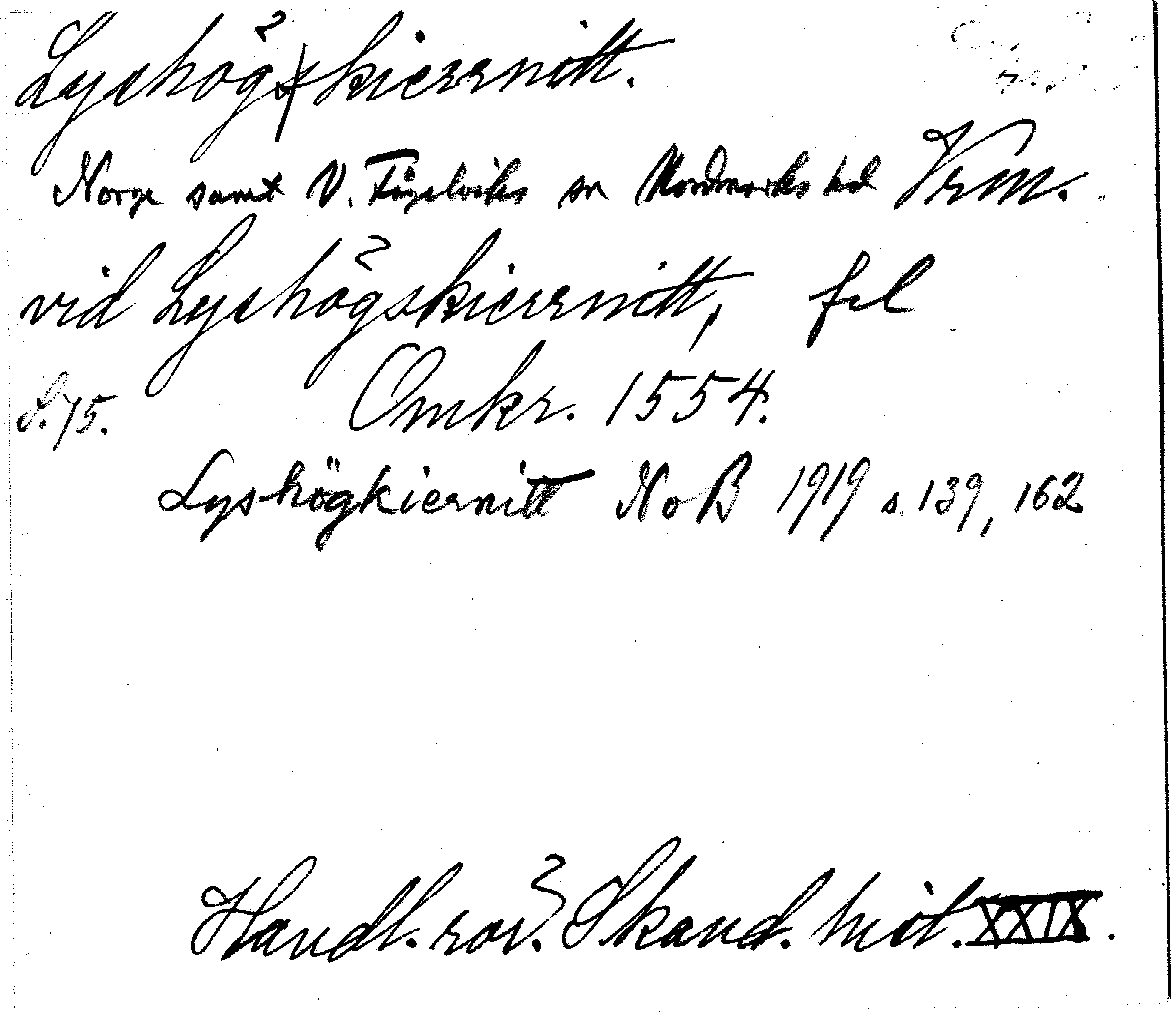 Lyshögskierrnitt.
Norge samt V. Fågelviks sn Nordmarks hd Vrm.
vid Lyshögskierrnitt, fel
S. 75. Omkr. 1554.
Lyshögkiernitt NoB 1919 s. 139, 162
Handl. rör. Skand. hist. XXIX.